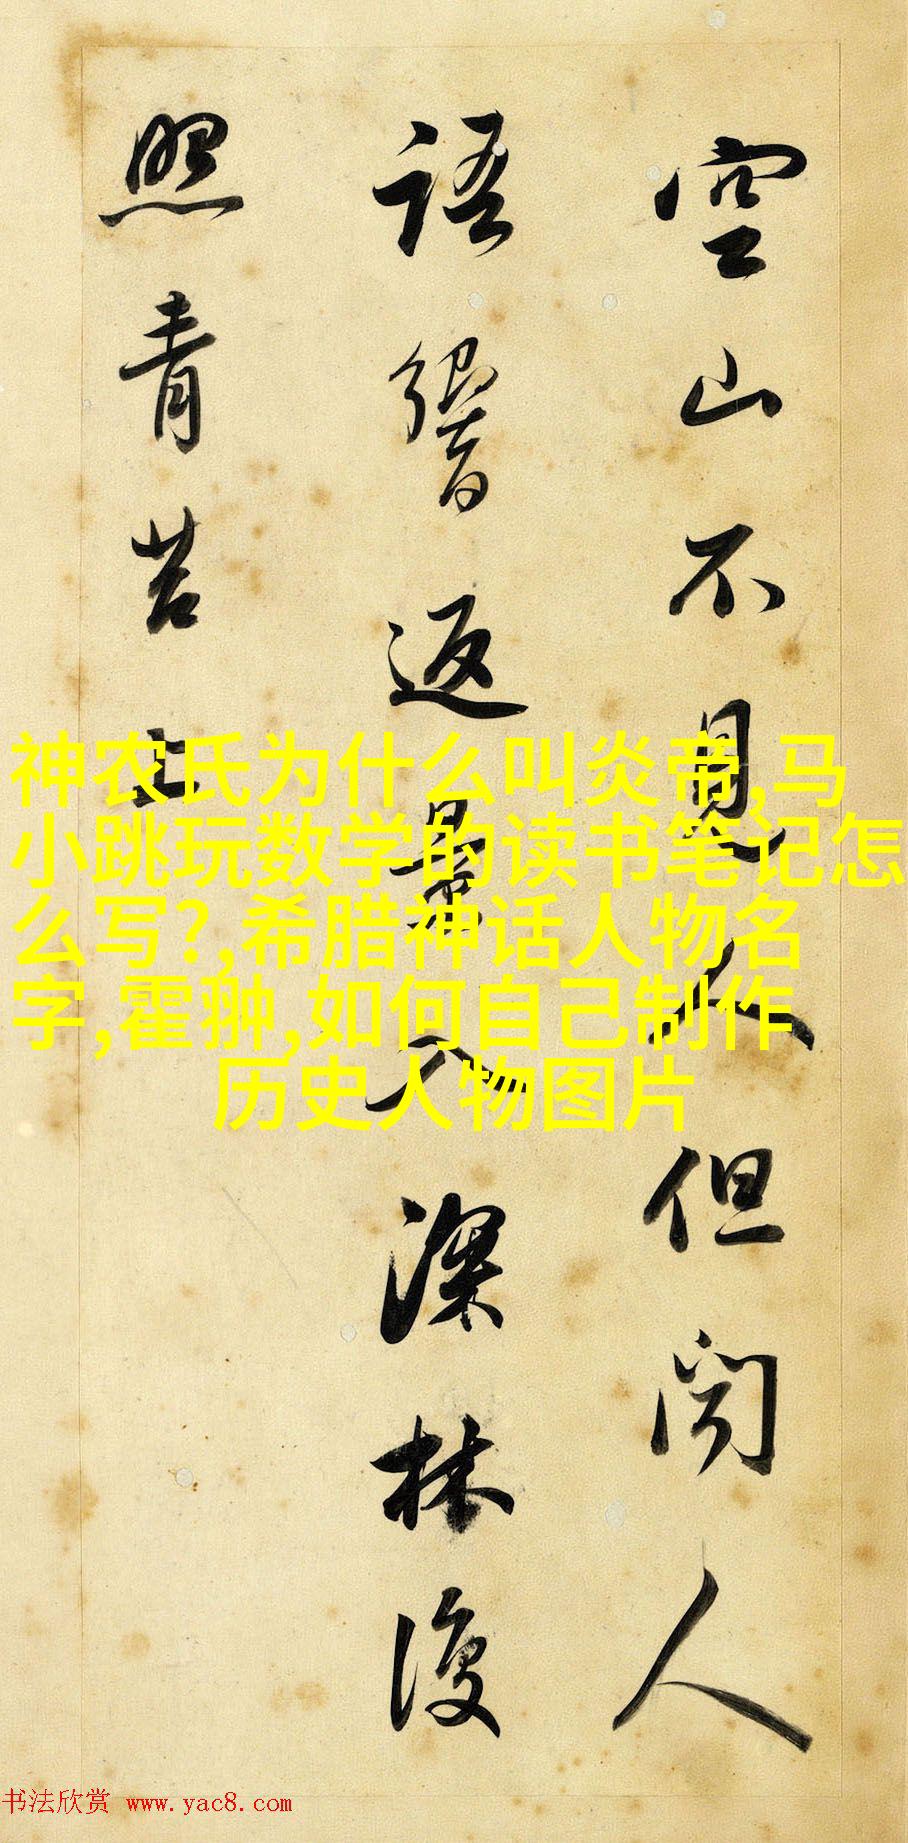 空山不見人但聞人
語響返景入深林復
照青苔上
神农氏为什么叫炎帝,马
小跳玩数学的读书笔记怎
么写?,希腊神话人物名
字,霍翀,如何自己制作
历史人物图片
书法欣赏 www.yac8.com